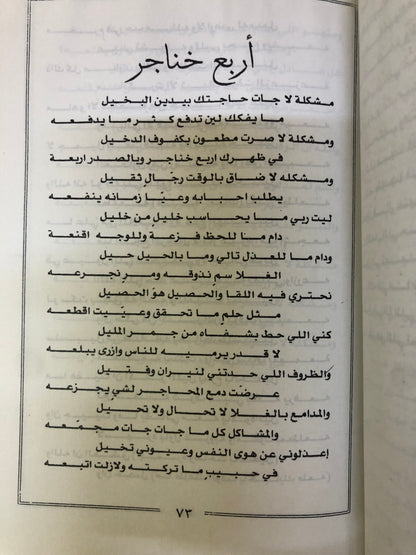 أربع خناجر
مشكلة لا جات حاجتك بيدين البخيل
ما يفكك لين تدفع كثر ما يدفعه
ومشكلة لا صرت مطعون بكفوف الدخيل
في ظهرك اربع خناجر وبالصدر اربعة
ومشكله لا ضاق بالوقت رجّالٍ ثقيل
يطلب احبابه وعيّا زمانه ينفعه
ليت ربي ما يحاسب خليل من خليل
دام منا للحظ فزعة وللوجه اقنعة
ودام ما للعذل تالي وما بالحيل حيل
الغلا سمٍ نذوقه ومرٍ نجرعه
نحتري فيه اللقا والحصيل هو الحصيل
مثل حلمٍ ما تحقق وعيّيت اقطعه
كني اللي حط بشفاه من جمر المليل
لا قدر يرميه للناس وازرى يبلعه
والظروف اللي حدتني لنيران وفتيل
عرضت دمع المحاجر لشيٍ يجزعه
والمدامع بالغلا لا تحال ولا تحيل
والمشاكل كل ما جات جات مجمّعه
إعذلوني عن هوى النفس وعيوني تخيل
في حبيبٍ ما تركته ولازلت اتبعه
٧٣